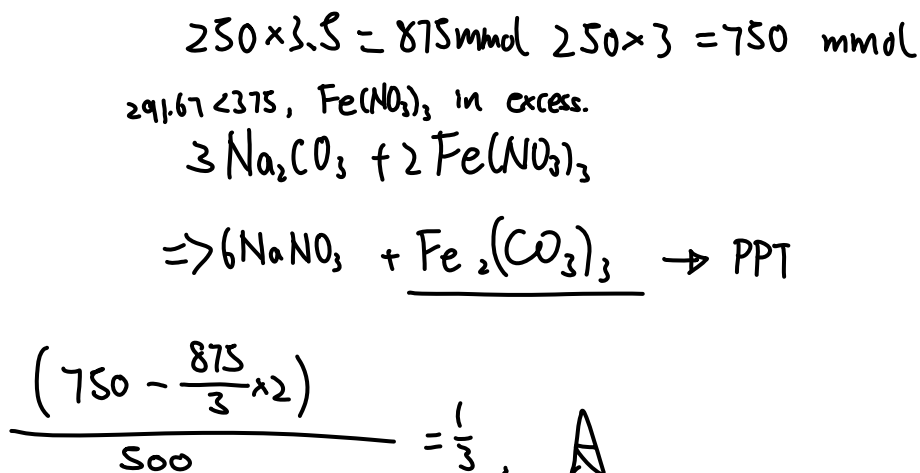 250×3.5 = 875mmol 250×3 = 750 mmol
291.67<375, Fe(NO₃)₃ in excess.
3Na₂CO₃ + 2Fe(NO₃)₃
=>6NaNO₃ + Fe₂(CO₃)₃ → PPT
(750 - 875/3 ×2)/500 = 1/3, A